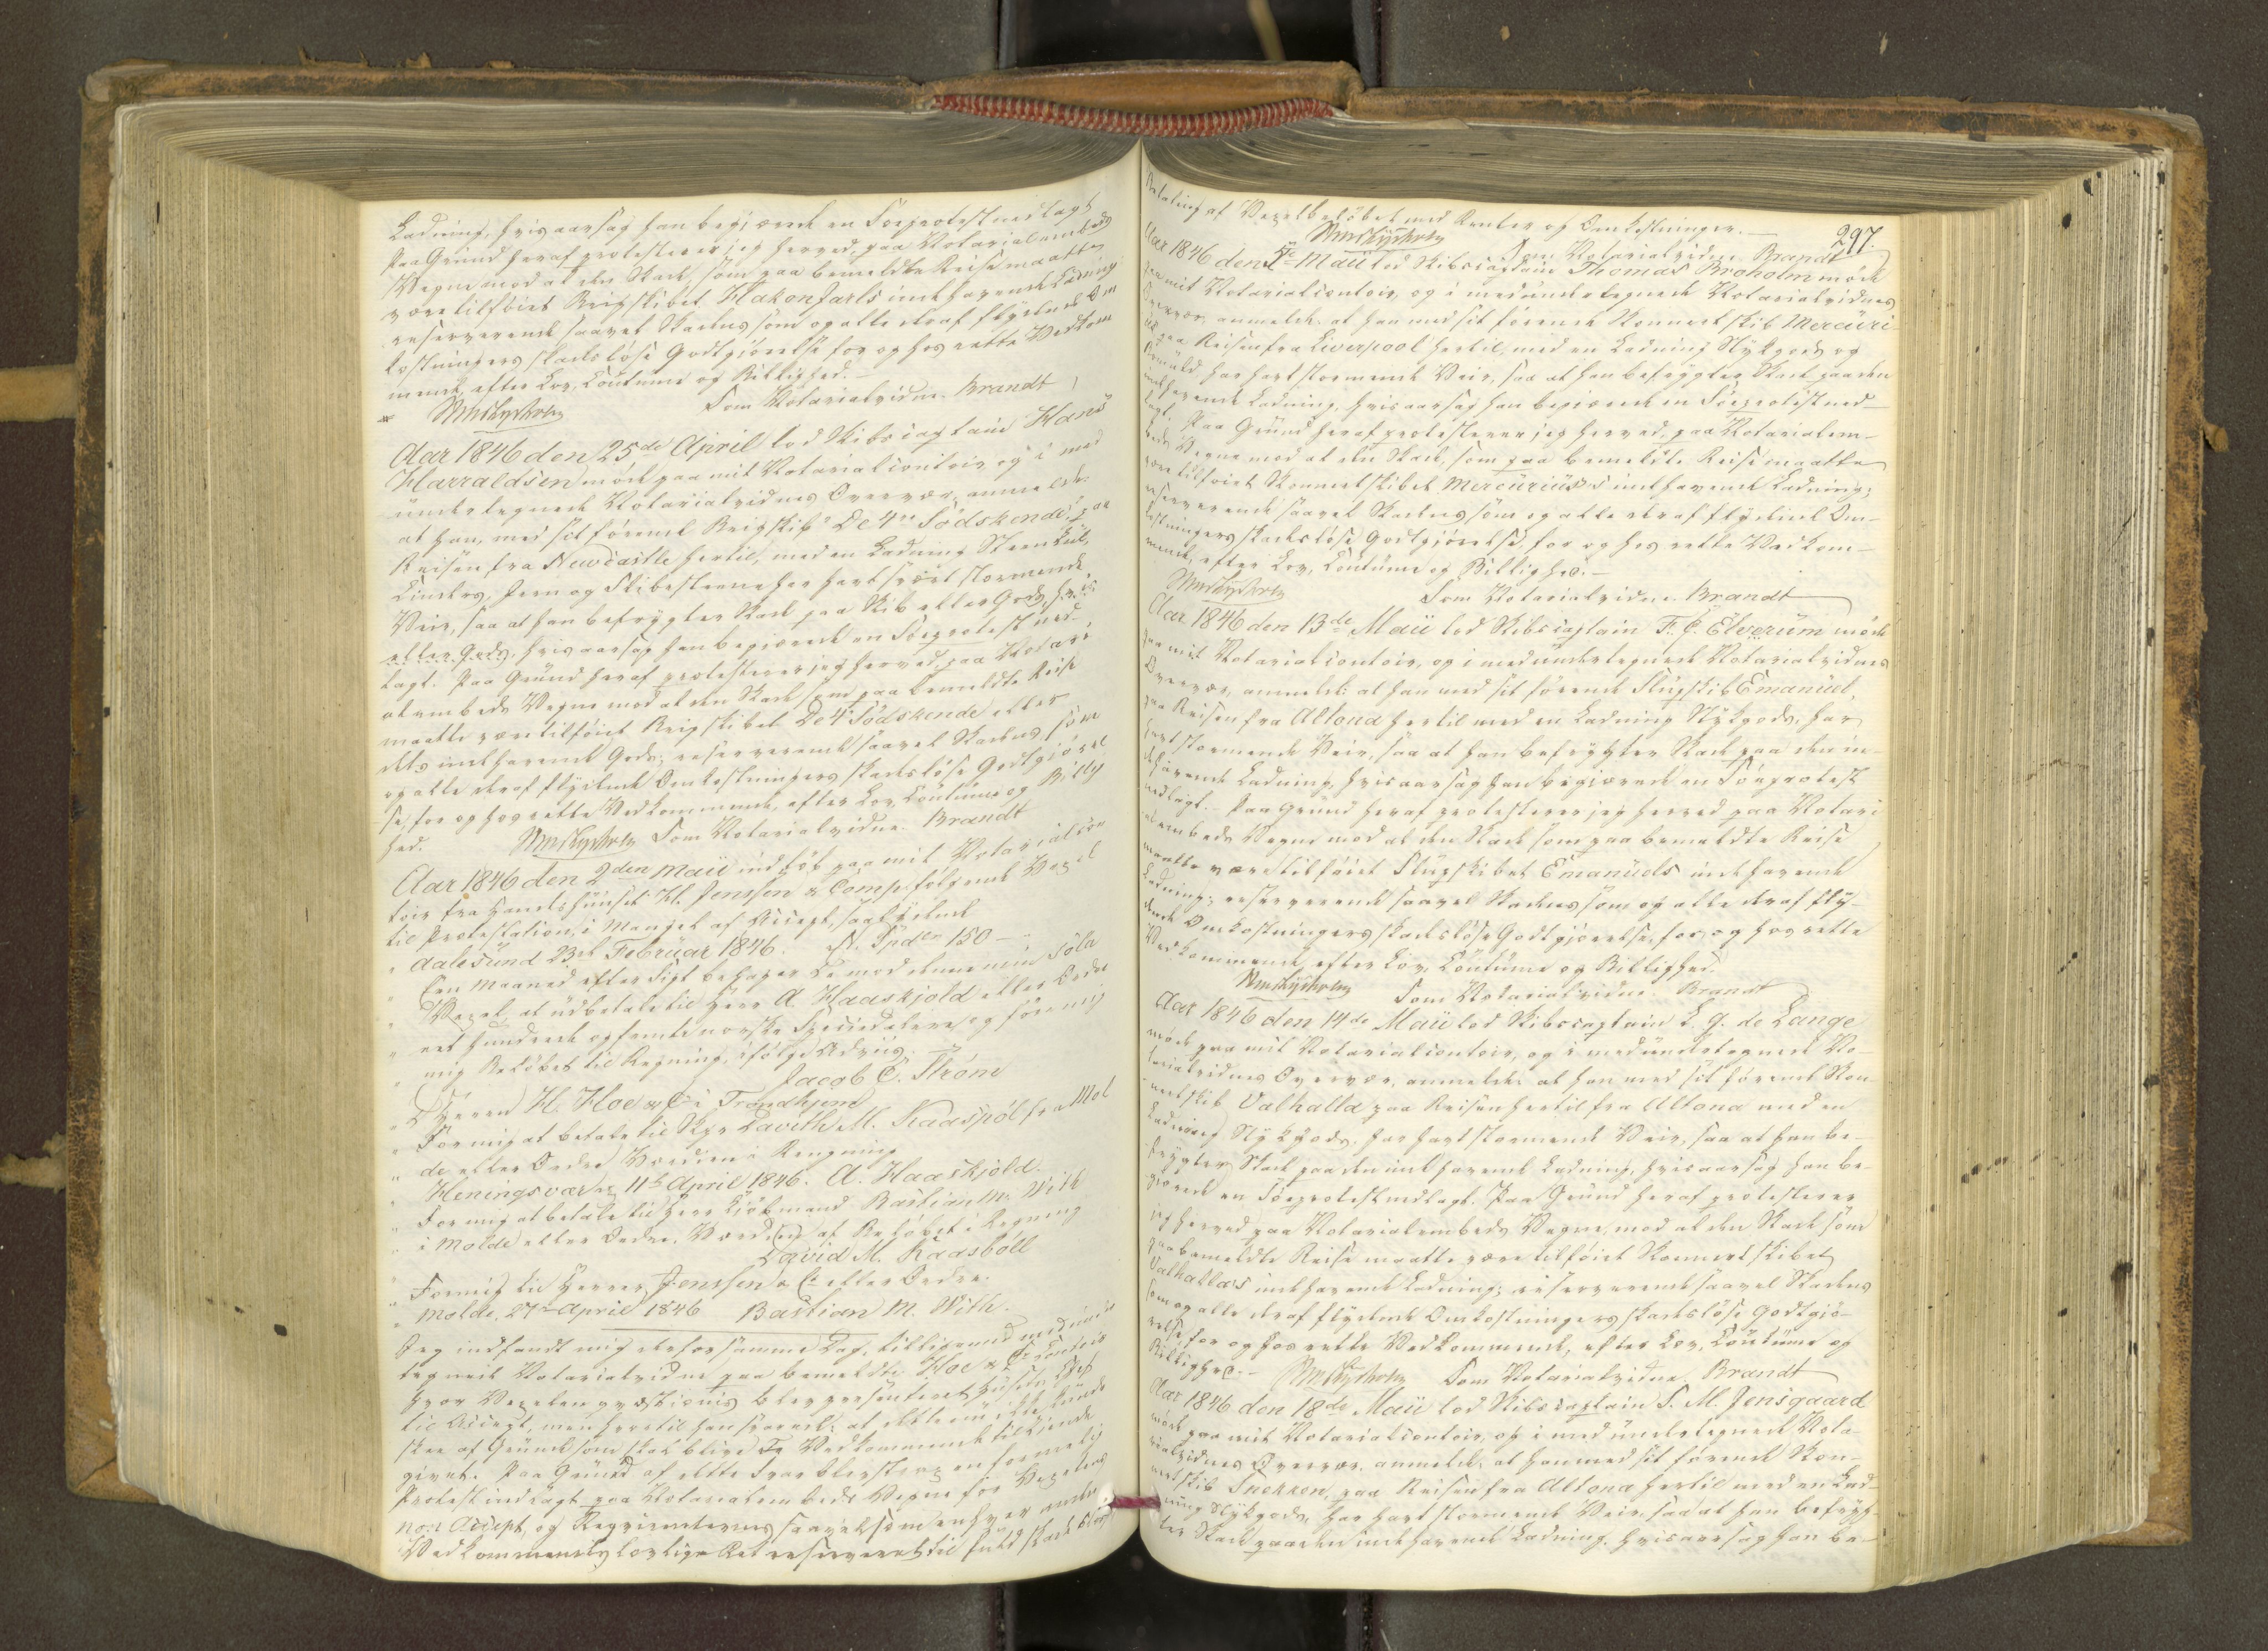 Ladning, hvisaarsag han begjærede en Søeprotest nedlagt
Paa Grund heraf protesterer jeg herved, paa Notarialembeds
Vegne mod at den Skade, som paa bemeldte Reise maatte
være tilføiet Brigskibet Hakon Jarls indehavende Ladning
reserverende saavel Skadens som og alle deraf flydende Om
kostningers skadesløse Godtgjørelse for og hos rette Vedkom
mende, efter Lov, Coutume og Billighed.-
Som Notarialvidne. Brandt
Aar 1846 den 25de April lod Skibscaptain Hans
Harraldsen møde paa mit Notarialcontoir og i med
undertegnede Notarialvidnes Overvær, anmelde:
at han, med sit førende Brigskib "De 4re Södskende", paa
Reisen fra Newcastle hertil, med en Ladning Steenkul,
Cinders, Jern og Slibestene har havt svært stormende
Veir, saa at han befrygter Skade paa Skib eller Gods, hvis
eller Gods, hvisaarsag han begjærede en Søeprotest ned-
lagt. Paa Grund heraf protesterer jeg herved, paa Notari
alembeds Vegne mod at den Skade som paa bemeldte Reise
maatte være tilføiet Brigskibet De 4re Södskende eller
dets indehavende Gods; reserverende saavel Skadens som
og alle deraf flydende Omkostningers skadesløse Godtgjørel
se, for og hos rette Vedkommende, efter Lov, Coutume og Billig
hed. Som Notarialvidne. Brandt
Aar 1846 den 2den Maii indløb paa mit Notarialcon
toir fra Handelshuuset H. Jenssen & Comp. følgende Vexel
til Protestation, i Mangel af Accept, saalydende
" Aalesund 23de Februar 1846. Spdlr 150 –
" Een Maaned efter Sigt behager De mod denne min Sola
" Vexel at udbetale til Herr A. Haaskjold eller Ordre
" eet hundrede og femti norske Speciedalere og före mig
" mig Beløbet til Regning, ifølge Adviis.
Jacob E. Ström
" Herrer H. Hoe & C: i Trondhjem
" For mig at betale til Skpr Davith M. Raaspöl fra Mol
" de eller Ordre, Værdien i Rengning
" Heningsvær 11te April 1846. A. Haaskjold.
" For mig at betale til Herr Kjøbmand Bastian M. With
" i Molde eller Ordre, Værdien af Beløbet i Regning
David M. Raasböll
" For mig til Herrer Jenssen & C: eller Ordre.
" Molde, 27de April 1846 Bastian M. With.
Jeg indfandt mig derfor samme Dag, tilligemed medun
tegnede Notarialvidne paa bemeldte Hoe & C: Contoir
hvor Vexelen quæstionis blev præsenteret Husets Chef
til Accept, men hvortil han svarede: at dette nu ikke kunde
skee af Grunde som skal blive Vedkommende tilkjende
givet. Paa Grund af dette Svar blev strax en formelig
Protest indlagt paa Notarialembeds Vegne for Vexelens
non Accept, og Reqvirenternes saavelsom enhver anden
Vedkommendes lovlige Ret reserveret til fuld skadesløs
Betaling af Vexelbeløbet med Renter og Omkostninger.-
297.
Som Notarialvidne Brandt
Aar 1846 den 5te Maii lod Skibscaptain Thomas Broholm møde
paa mit Notarialcontoir, og i medundertegnede Notarialvidnes
Overvær, anmelde: at han med sit førende Skonnertskib Mercuri
us paa Reisen fra Liverpool hertil, med en Ladning Stykgods og
har havt stormende Veir, saa at han befrygter Skade paa den
indehavende Ladning, hvisaarsag han begjærede en Søeprotest ned-
lagt. Paa Grund heraf protesterer jeg herved, paa Notarialem-
beds Vegne mod at den Skade, som paa bemeldte Reise maatte
være tilføiet Skonnertskibet Mercurius's indehavende Ladning;
reserverende saavel Skadens som og alle deraf flydende Om-
kostningers skadesløse Godtgjørelse, for og hos rette Vedkom-
mende, efter Lov, Coutume og Billighed.-
Som Notarialvidne. Brandt
Aar 1846 den 13de Maii lod Skibscaptain F. C. Elverum møde
paa mit Notarialcontoir, og i medundertegnede Notarialvidnes
Overvær, anmelde: at han med sit førende Slupskib Emanuel,
paa Reisen fra Altona hertil med en Ladning Stykgods, har
havt stormende Veir, saa at han befrygter Skade paa den in-
dehavende Ladning, hvisaarsag han begjærede en Søeprotest
nedlagt.- Paa Grund heraf protesterer jeg herved paa Notari
alembeds Vegne mod at den Skade som paa bemeldte Reise
maatte være tilføiet Slupskibet Emanuels indehavende
Ladning; reserverende saavel Skadens som og alle deraf fly-
dende Omkostningers skadesløse Godtgjørelse, for og hos rette
Vedkommende, efter Lov, Coutume og Billighed.
Som Notarialvidne. Brandt
Aar 1846 den 14de Maii lod Skibscaptain L. G. de Lange
møde paa mit Notarialcontoir, og i medundertegnede No-
tarialvidnes Overvær, anmelde: at han med sit førende Skon-
nertskib Valhalla paa Reisen hertil fra Altona med en
Ladning Stykgods, har havt stormende Veir, saa at han be-
frygter Skade paa den indehavende Ladning, hvisaarsag han be-
gjærede en Søeprotest nedlagt. Paa Grund heraf protesterer
jeg herved paa Notarialembeds Vegne, mod at den Skade som
paa bemeldte Reise maatte være tilføiet Skonnertskibet
Valhalla's indehavende Ladning; reserverende saavel Skadens
som og alle deraf flydende Omkostningers skadesløse Godtgjø-
relse for og hos rette Vedkommende, efter Lov, Coutume og
Billighed.- Som Notarialvidne. Brandt
Aar 1846 den 18de Maii lod Skibscaptain S. M. Jensgaard
møde paa mit Notarialcontoir, og i medundertegnede Nota-
rialvidnes Overvær, anmelde: at han med sit førende Skon-
nertskib Snekken, paa Reisen fra Altona hertil med en Lad-
ning Stykgods, har havt stormende Veir, saa at han befryg-
ter Skade paa den indehavende Ladning, hvisaarsag han be-